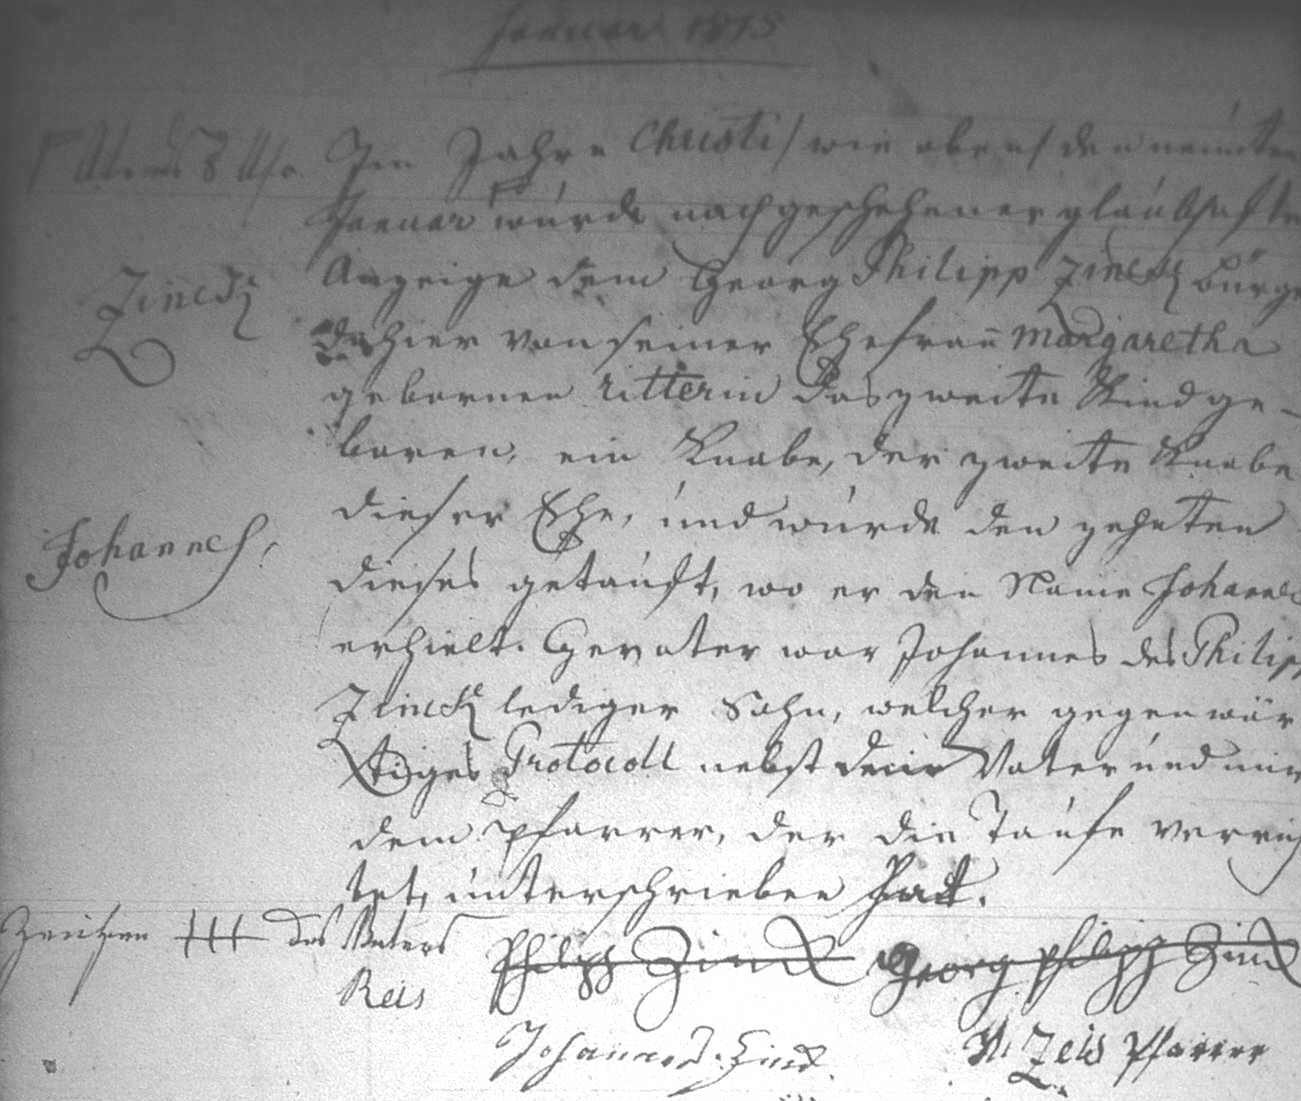 Januar 1815
Abends 8 Uhr. Im Jahre Christi / wie oben / den neünten
Januar würde nach geschehener glaübhafte
Zinck Anzeige dem Georg Philipp Zinck Bürge
dahier von seiner Ehefraü Margaretha
gebornen Ritterin das zweite Kind ge-
boren, ein Knabe, der zweite Knabe
dieser Ehe, ünd würde den zehnten
Johannes. dieses getaüft, wo er den Name Johannes
erhielt. Gevater war Johannes des Philipp
Zinck lediger Sohn, welcher gegenwär
tiges Protocoll nebst dem Vater ünd mir
dem Pfarrer, der die Taüfe verrich
tet, ünterschrieben hat.
+++ des Vaters Philipp Zinck Georg Philipp Zinck
Johannes Zinck. Zeis Pfarrer